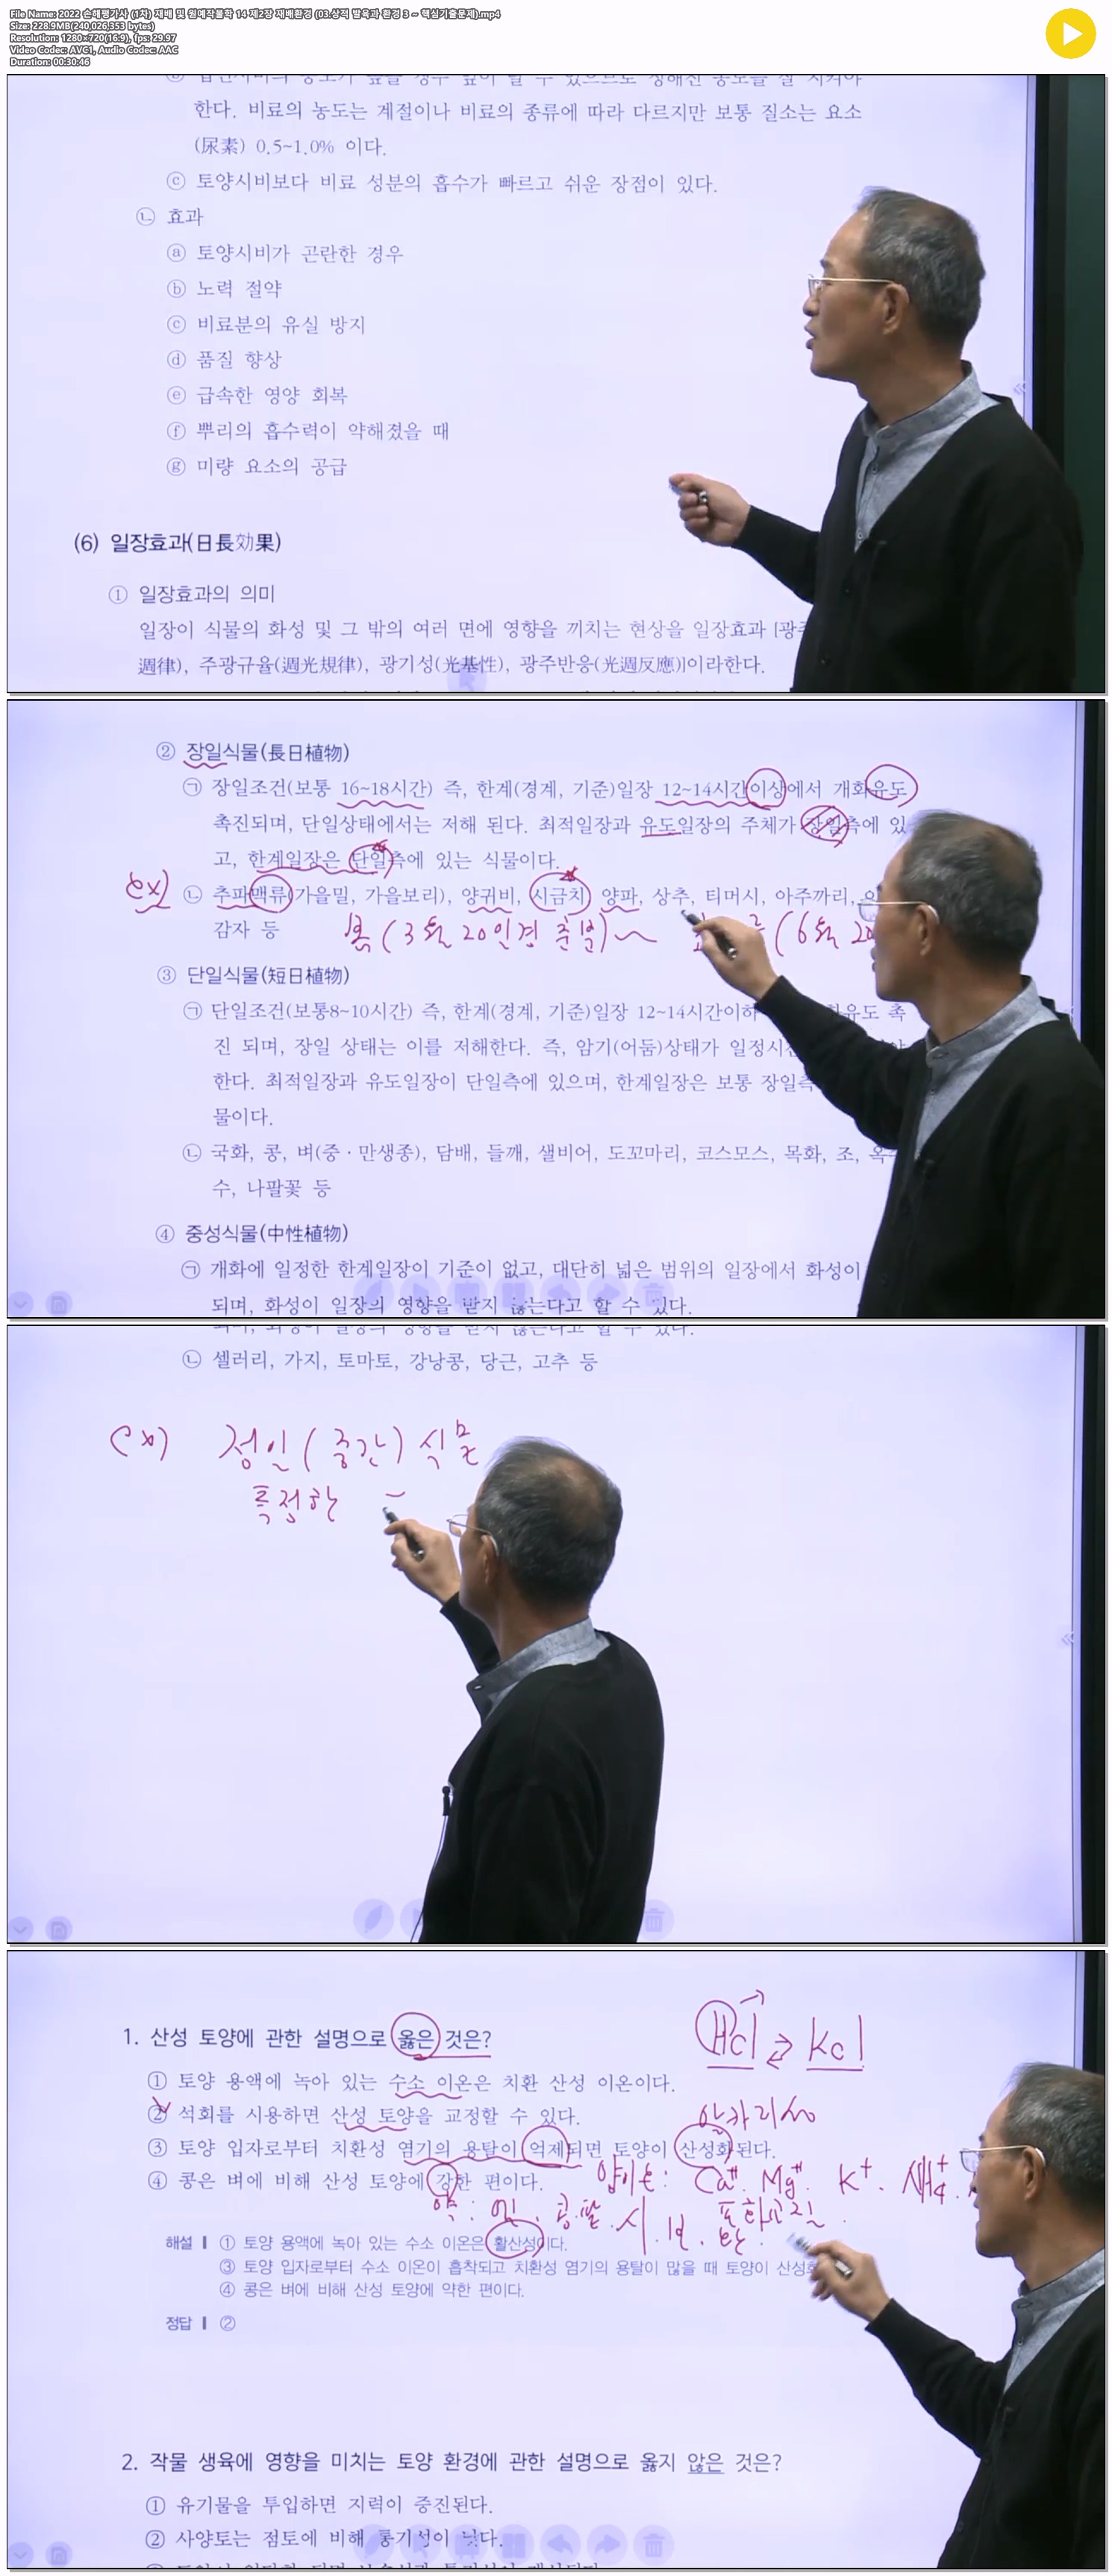 File Name: 2022 손해평가사 (1차) 재배 및 원예작물학 14 제2장 재배환경 (03.상적 발육과 환경 3 ~ 핵심기출문제).mp4
Size: 228.9MB(240,026,353 bytes)
Resolution: 1280×720(16:9), fps: 29.97
Video Codec: AVC1, Audio Codec: AAC
Duration: 00:30:46
한다. 비료의 농도는 계절이나 비료의 종류에 따라 다르지만 보통 질소는 요소
(尿素) 0.5~1.0% 이다.
ⓒ 토양시비보다 비료 성분의 흡수가 빠르고 쉬운 장점이 있다.
㉡ 효과
ⓐ 토양시비가 곤란한 경우
ⓑ 노력 절약
ⓒ 비료분의 유실 방지
ⓓ 품질 향상
ⓔ 급속한 영양 회복
ⓕ 뿌리의 흡수력이 약해졌을 때
ⓖ 미량 요소의 공급
(6) 일장효과(日長効果)
① 일장효과의 의미
일장이 식물의 화성 및 그 밖의 여러 면에 영향을 끼치는 현상을 일장효과 [광주
週律), 주광규율(週光規律), 광기성(光基性), 광주반응(光週反應)]이라한다.
② 장일식물(長日植物)
㉠ 장일조건(보통 16~18시간) 즉, 한계(경계, 기준)일장 12~14시간이상에서 개화유도
촉진되며, 단일상태에서는 저해 된다. 최적일장과 유도일장의 주체가 장일측에 있
고, 한계일장은 단일측에 있는 식물이다.
ex) ㉡ 추파맥류(가을밀, 가을보리), 양귀비, 시금치, 양파, 상추, 티머시, 아주까리,
감자 등
봄(3월 20일경 춘분)~ (6월 20
③ 단일식물(短日植物)
㉠ 단일조건(보통8~10시간) 즉, 한계(경계, 기준)일장 12~14시간이하 유도 촉
진 되며, 장일 상태는 이를 저해한다. 즉, 암기(어둠)상태가 일정시
한다. 최적일장과 유도일장이 단일측에 있으며, 한계일장은 보통 장일측
물이다.
㉡ 국화, 콩, 벼(중·만생종), 담배, 들깨, 샐비어, 도꼬마리, 코스모스, 목화, 조, 옥
수, 나팔꽃 등
④ 중성식물(中性植物)
㉠ 개화에 일정한 한계일장이 기준이 없고, 대단히 넓은 범위의 일장에서 화성이
되며, 화성이 일장의 영향을 받지 않는다고 할 수 있다.
되며, 화성이 일장의 영향을 받지 않는다고 할 수 있다.
㉡ 셀러리, 가지, 토마토, 강낭콩, 당근, 고추 등
ex) 정일(중간)식물
특정한
1. 산성 토양에 관한 설명으로 옳은 것은?
HCl ⇄ KCl
① 토양 용액에 녹아 있는 수소 이온은 치환 산성 이온이다.
② 석회를 시용하면 산성 토양을 교정할 수 있다.
알카리성
③ 토양 입자로부터 치환성 염기의 용탈이 억제되면 토양이 산성화된다.
④ 콩은 벼에 비해 산성 토양에 강한 편이다.
양이온: Ca⁺⁺ Mg⁺⁺ K⁺
해설 ① 토양 용액에 녹아 있는 수소 이온은 활산성이다.
③ 토양 입자로부터 수소 이온이 흡착되고 치환성 염기의 용탈이 많을 때 토양이 산성화
④ 콩은 벼에 비해 산성 토양에 약한 편이다.
정답 ②
2. 작물 생육에 영향을 미치는 토양 환경에 관한 설명으로 옳지 않은 것은?
① 유기물을 투입하면 지력이 증진된다.
② 사양토는 점토에 비해 통기성이 낮다.